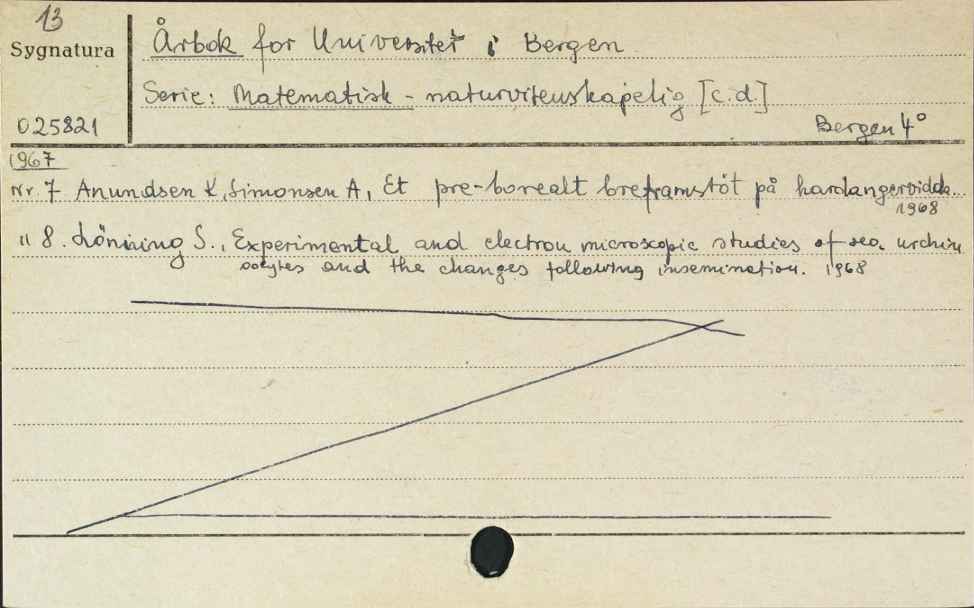 13
Sygnatura
025821
Årbok for Universitet i Bergen
Serie: Matematisk - naturvitenskapelig [c.d.]
Bergen 4°
1967
Nr. 7 Anundsen K, Simonsen A, Et pre-borealt breframstöt på hardangervidda.
1968
" 8. Lönning S., Experimental and electron microscopic studies of sea urchin
oocytes and the changes following insemination. 1968